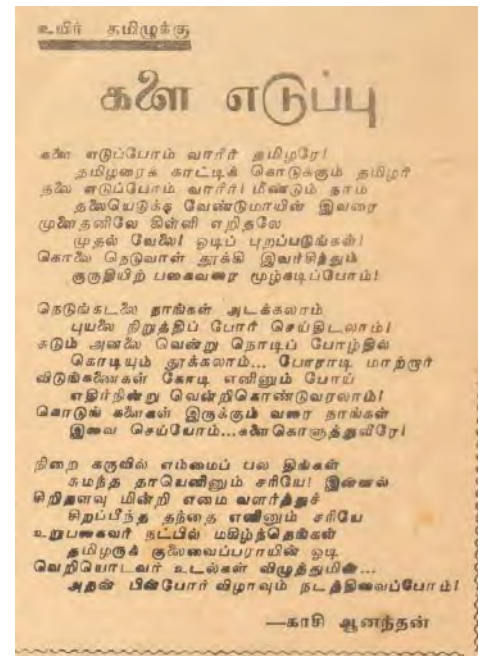 உயிர் தமிழுக்கு
களை எடுப்பு
களை எடுப்போம் வாரீர் தமிழரே!
தமிழரைக் காட்டிக் கொடுக்கும் தமிழர்
தலை எடுப்போம் வாரீர்! மீண்டும் நாம்
தலையெடுக்க வேண்டுமாயின் இவரை
முளைதனிலே கிள்ளி எறிதலே
முதல் வேலை! ஓடிப் புறப்படுங்கள்!
கொலை நெடுவாள் தூக்கி இவர்சிந்தும்
குருதியிற் பகைவரை மூழ்கடிப்போம்!
நெடுங்கடலை நாங்கள் அடக்கலாம்
புயலை நிறுத்திப் போர் செய்திடலாம்!
சுடும் அனலை வென்று நொடிப் போழ்தில்
கொடியும் தூக்கலாம்... போராடி மாற்றார்
விடுங்கணைகள் கோடி எனினும் போய்
எதிர்நின்று வென்றிகொண்டுவரலாம்!
கொடுங் களைகள் இருக்கும் வரை நாங்கள்
இவை செய்யோம்...களைகொளுத்துவீரே!
நிறை கருவில் எம்மைப் பல திங்கள்
சுமந்த தாயெனினும் சரியே! இன்னல்
சிறிதளவு மின்றி எமை வளர்த்துச்
சிறப்பீந்த தந்தை எனினும் சரியே
உறுபகைவர் நட்பில் மகிழ்ந்தெங்கள்
தமிழருக் குலைவைப்பராயின் ஓடி
வெறியொடவர் உடல்கள் வீழ்த்துமின்...
அதன் பின்போர் விழாவும் நடத்திவைப்போம்!
—காசி ஆனந்தன்